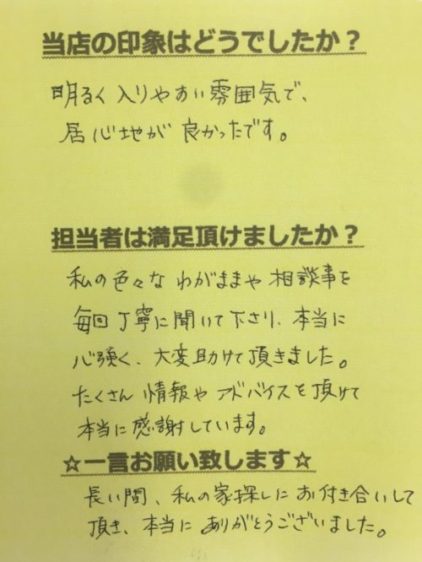 当店の印象はどうでしたか？
明るく入りやすい雰囲気で、
居心地が良かったです。
担当者は満足頂けましたか？
私の色々なわがままや相談事を
毎回丁寧に聞いて下さり、本当に
心強く、大変助けて頂きました。
たくさん情報やアドバイスを頂けて
本当に感謝しています。
☆一言お願い致します☆
長い間、私の家探しにお付き合いして
頂き、本当にありがとうございました。